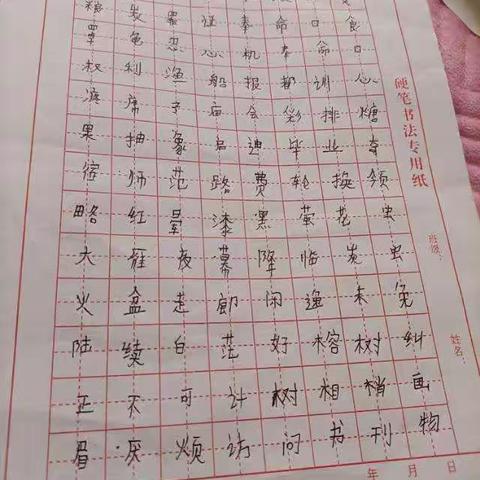 命 口 食
龟 忍 心 机 本 命 口
权 利 渔 船 报 都 训 心
席 予 庙 会 彩 排 糖
果 抽 象 启 迪 毕 业 夸
宿 师 范 路 费 轮 换 领
略 红 晕 漆 黑 萤 花 虫
大 雁 夜 幕 降 临 虫
火 盆 走 廊 闲 逸 未 免
陆 续 白 茫 好 榕 树 纠
正 不 可 计 树 相 梢 画
眉 厌 烦 访 问 书 刊 物
硬笔书法专用纸
班级:
姓名:
年 月 日